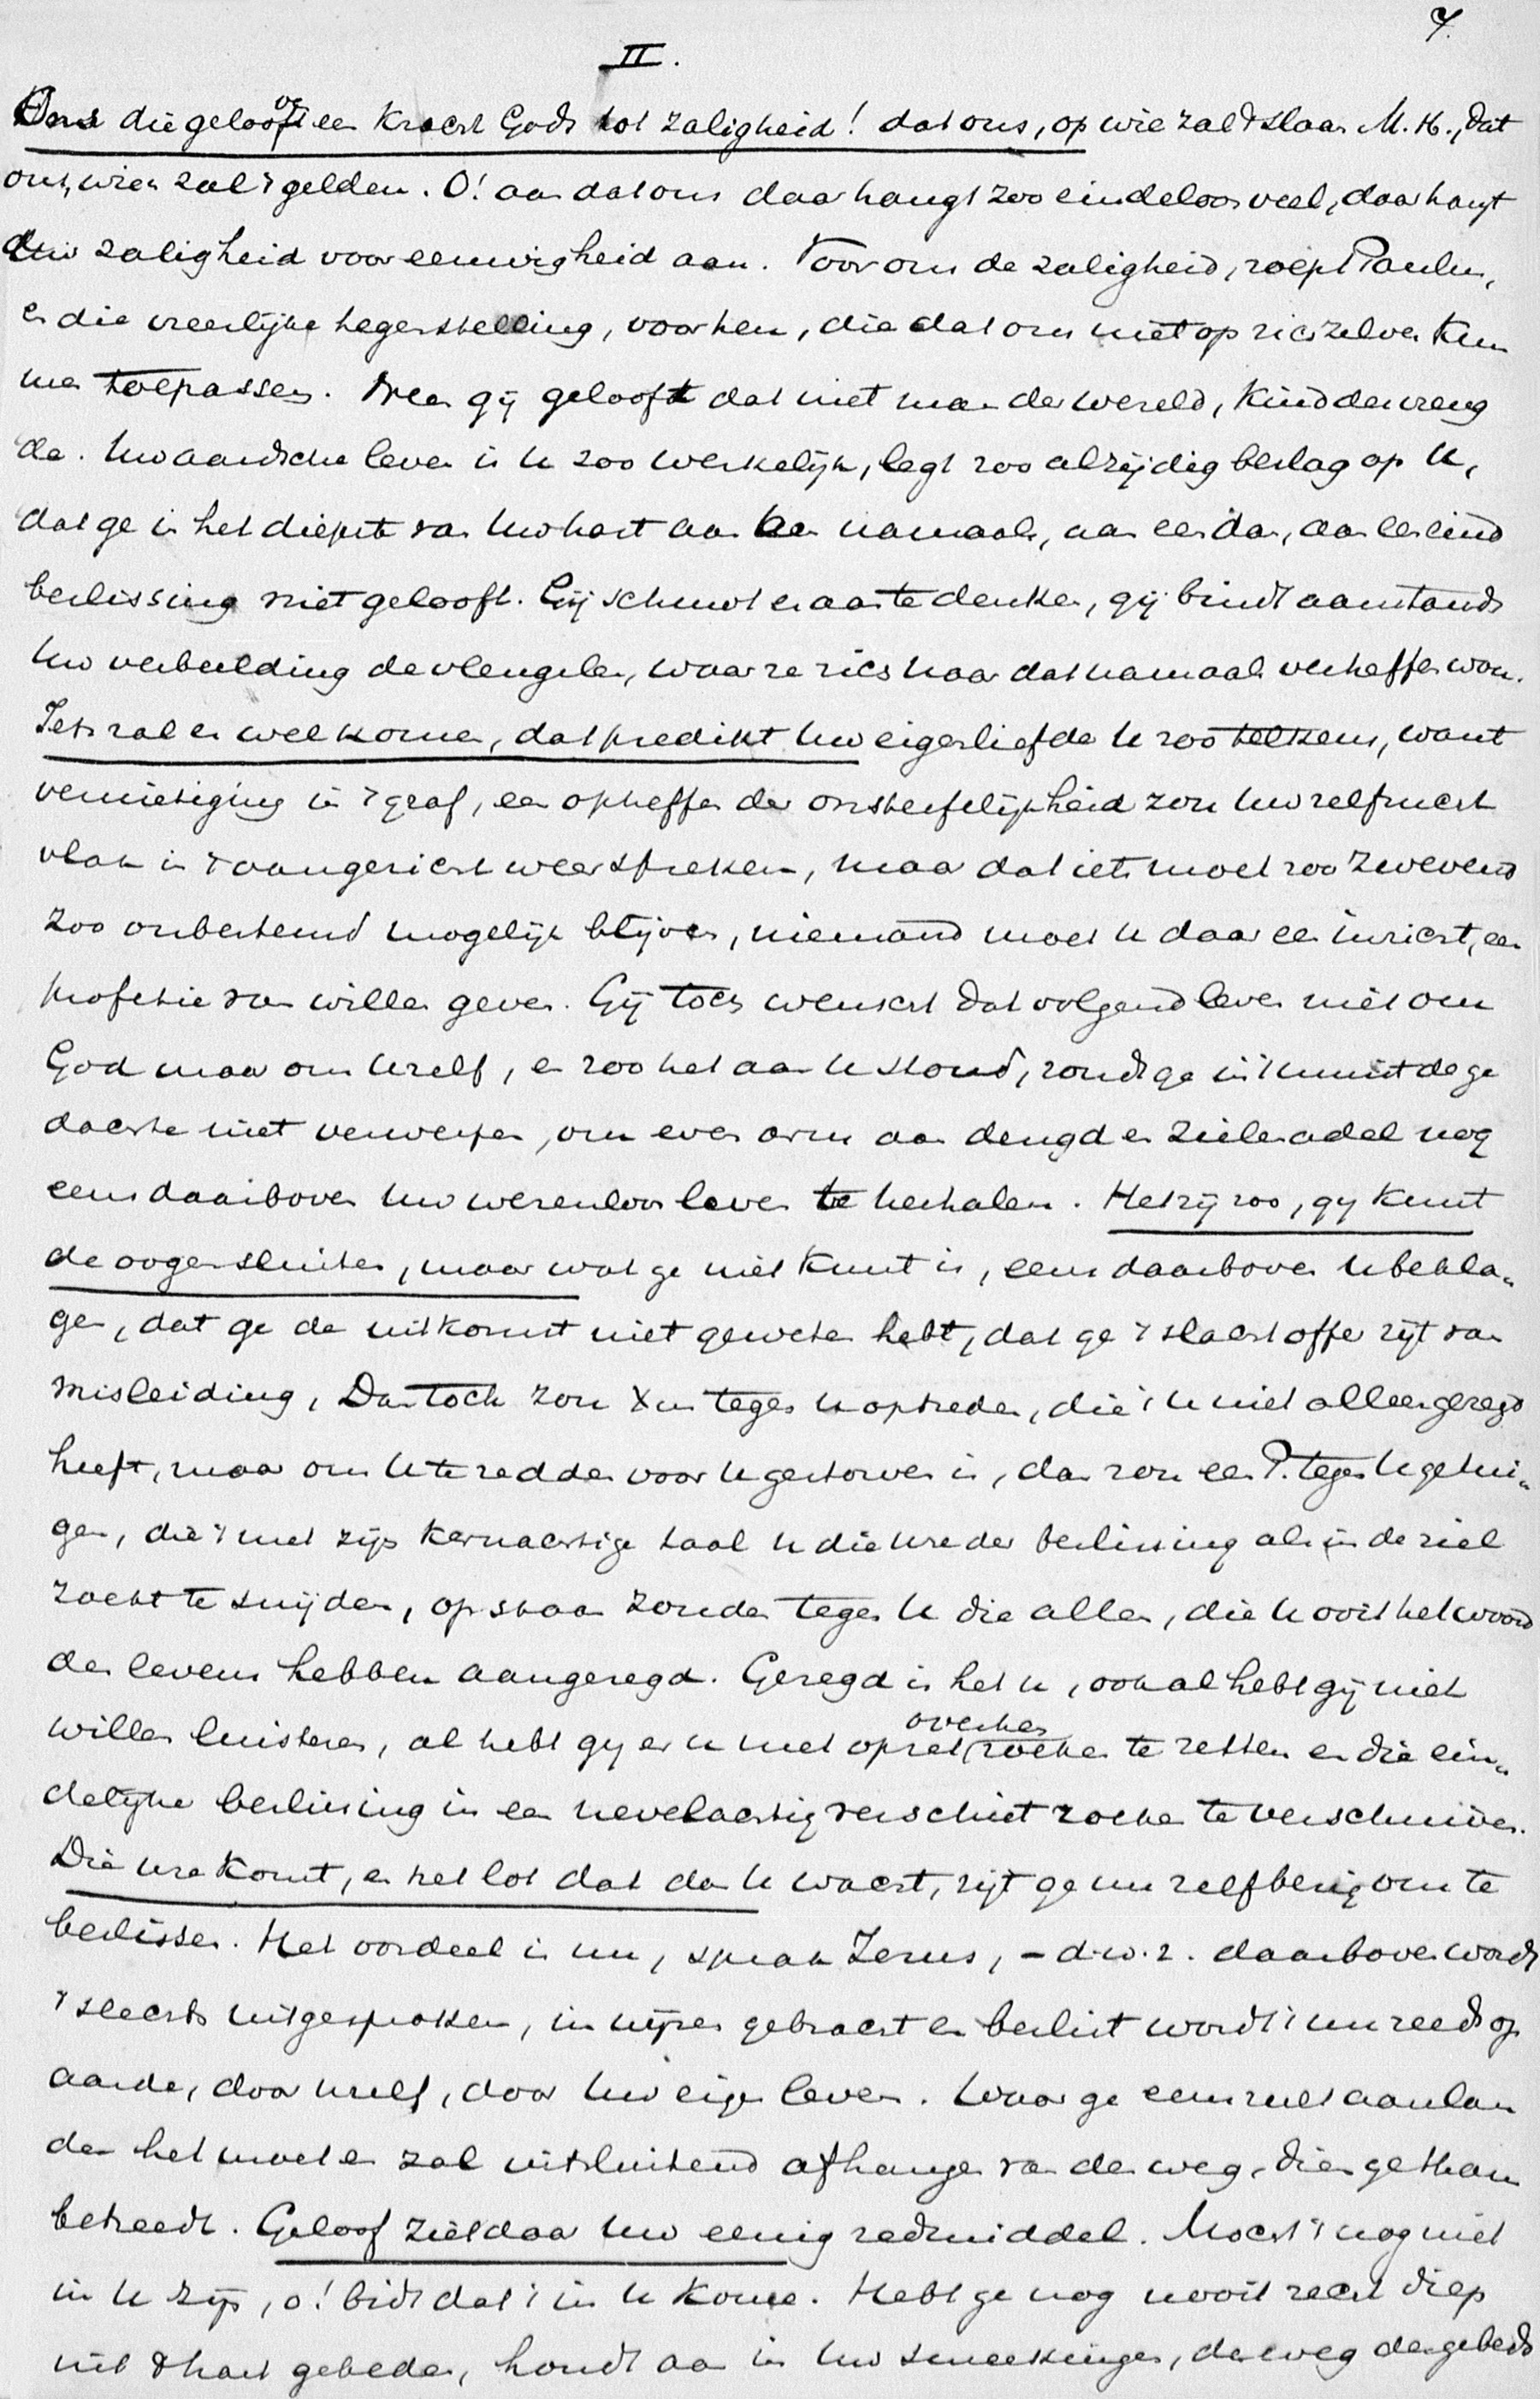 7.
II.
Ons die gelooven een kracht Gods tot zaligheid! dat ons, op wie zal 't slaan M. H., dat
ons, wien zal 't gelden. O! aan dat ons daar hangt zoo eindeloos veel, daar hangt
Uw zaligheid voor eeuwigheid aan. Voor ons de zaligheid, roept Paulus,
en die vreeslijke tegenstelling, voor hen, die dat ons niet op zich zelven kun
nen toepassen. Neen gij gelooft dat niet man der wereld, kind der vreug
de. Uw aardsche leven is U zoo werkelijk, legt zoo alzijdig beslag op U,
dat ge in het diepste van Uw hart aan een namaals, aan een dan, aan een eind
beslissing niet gelooft. Gij schuwt er aan te denken, gij bindt aanstonds
Uw verbeelding de vleugelen, waar ze zich naar dat namaals verheffen wou.
Iets zal er wel komen, dat predikt Uw eigenliefde U zoo telkens, want
vernietiging in 't graf, een opheffen der onsterfelijkheid zou Uw zelfzucht
vlak in 't aangezicht weerspreken, maar dat iets moet zoo zwevend
zoo onbestemd mogelijk blijven, niemand moet U daar een inzicht, een
profetie van willen geven. Gij toch wenscht dat volgend leven niet om
God maar om Uzelf, en zoo het aan U stond, zoudt ge in 't minst de ge
dachte niet verwerpen, om even arm aan deugd en zielenadel nog
eens daarboven Uw wezenloos leven te herhalen. Het zij zoo, gij kunt
de oogen sluiten, maar wat ge niet kunt is, eens daarboven U bekla„
gen, dat ge de uitkomst niet geweten hebt, dat ge 't slachtoffer zijt van
misleiding. Dan toch zou Xus tegen U optreden, die 't U niet alleen gezegd
heeft, maar om U te redden voor U gestorven is, dan zou een P. tegen U getui„
gen, die 't met zijn kernachtige taal U die ure der beslissing als in de ziel
zocht te snijden, opstaan zouden tegen U die allen, die U ooit het woord
des levens hebben aangezegd. Gezegd is het U, ook al hebt gij niet
willen luisteren, al hebt gij er U met opzet zoeken overheen te zetten en die ein„
delijke beslissing in een nevelachtig verschiet zoeken te verschuiven.
Die ure komt, en het lot dat dan U wacht, zijt ge nu zelf bezig om te
beslissen. Het oordeel is nu, sprak Jezus, – d.w.z. daarboven wordt
't slechts uitgesproken, in wijzen gebracht en beslist wordt 't nu reeds op
aarde, door Uzelf, door Uw eigen leven. Waar ge eens zult aanlan
den het moet en zal uitsluitend afhangen van den weg, dien ge thans
betreedt. Geloof ziet daar Uw eenig redmiddel. Mocht 't nog niet
in U zijn, o! bidt dat 't in U kome. Hebt ge nog nooit recht diep
uit 't hart gebeden, houdt aan in Uw smeekingen, de weg des gebeds